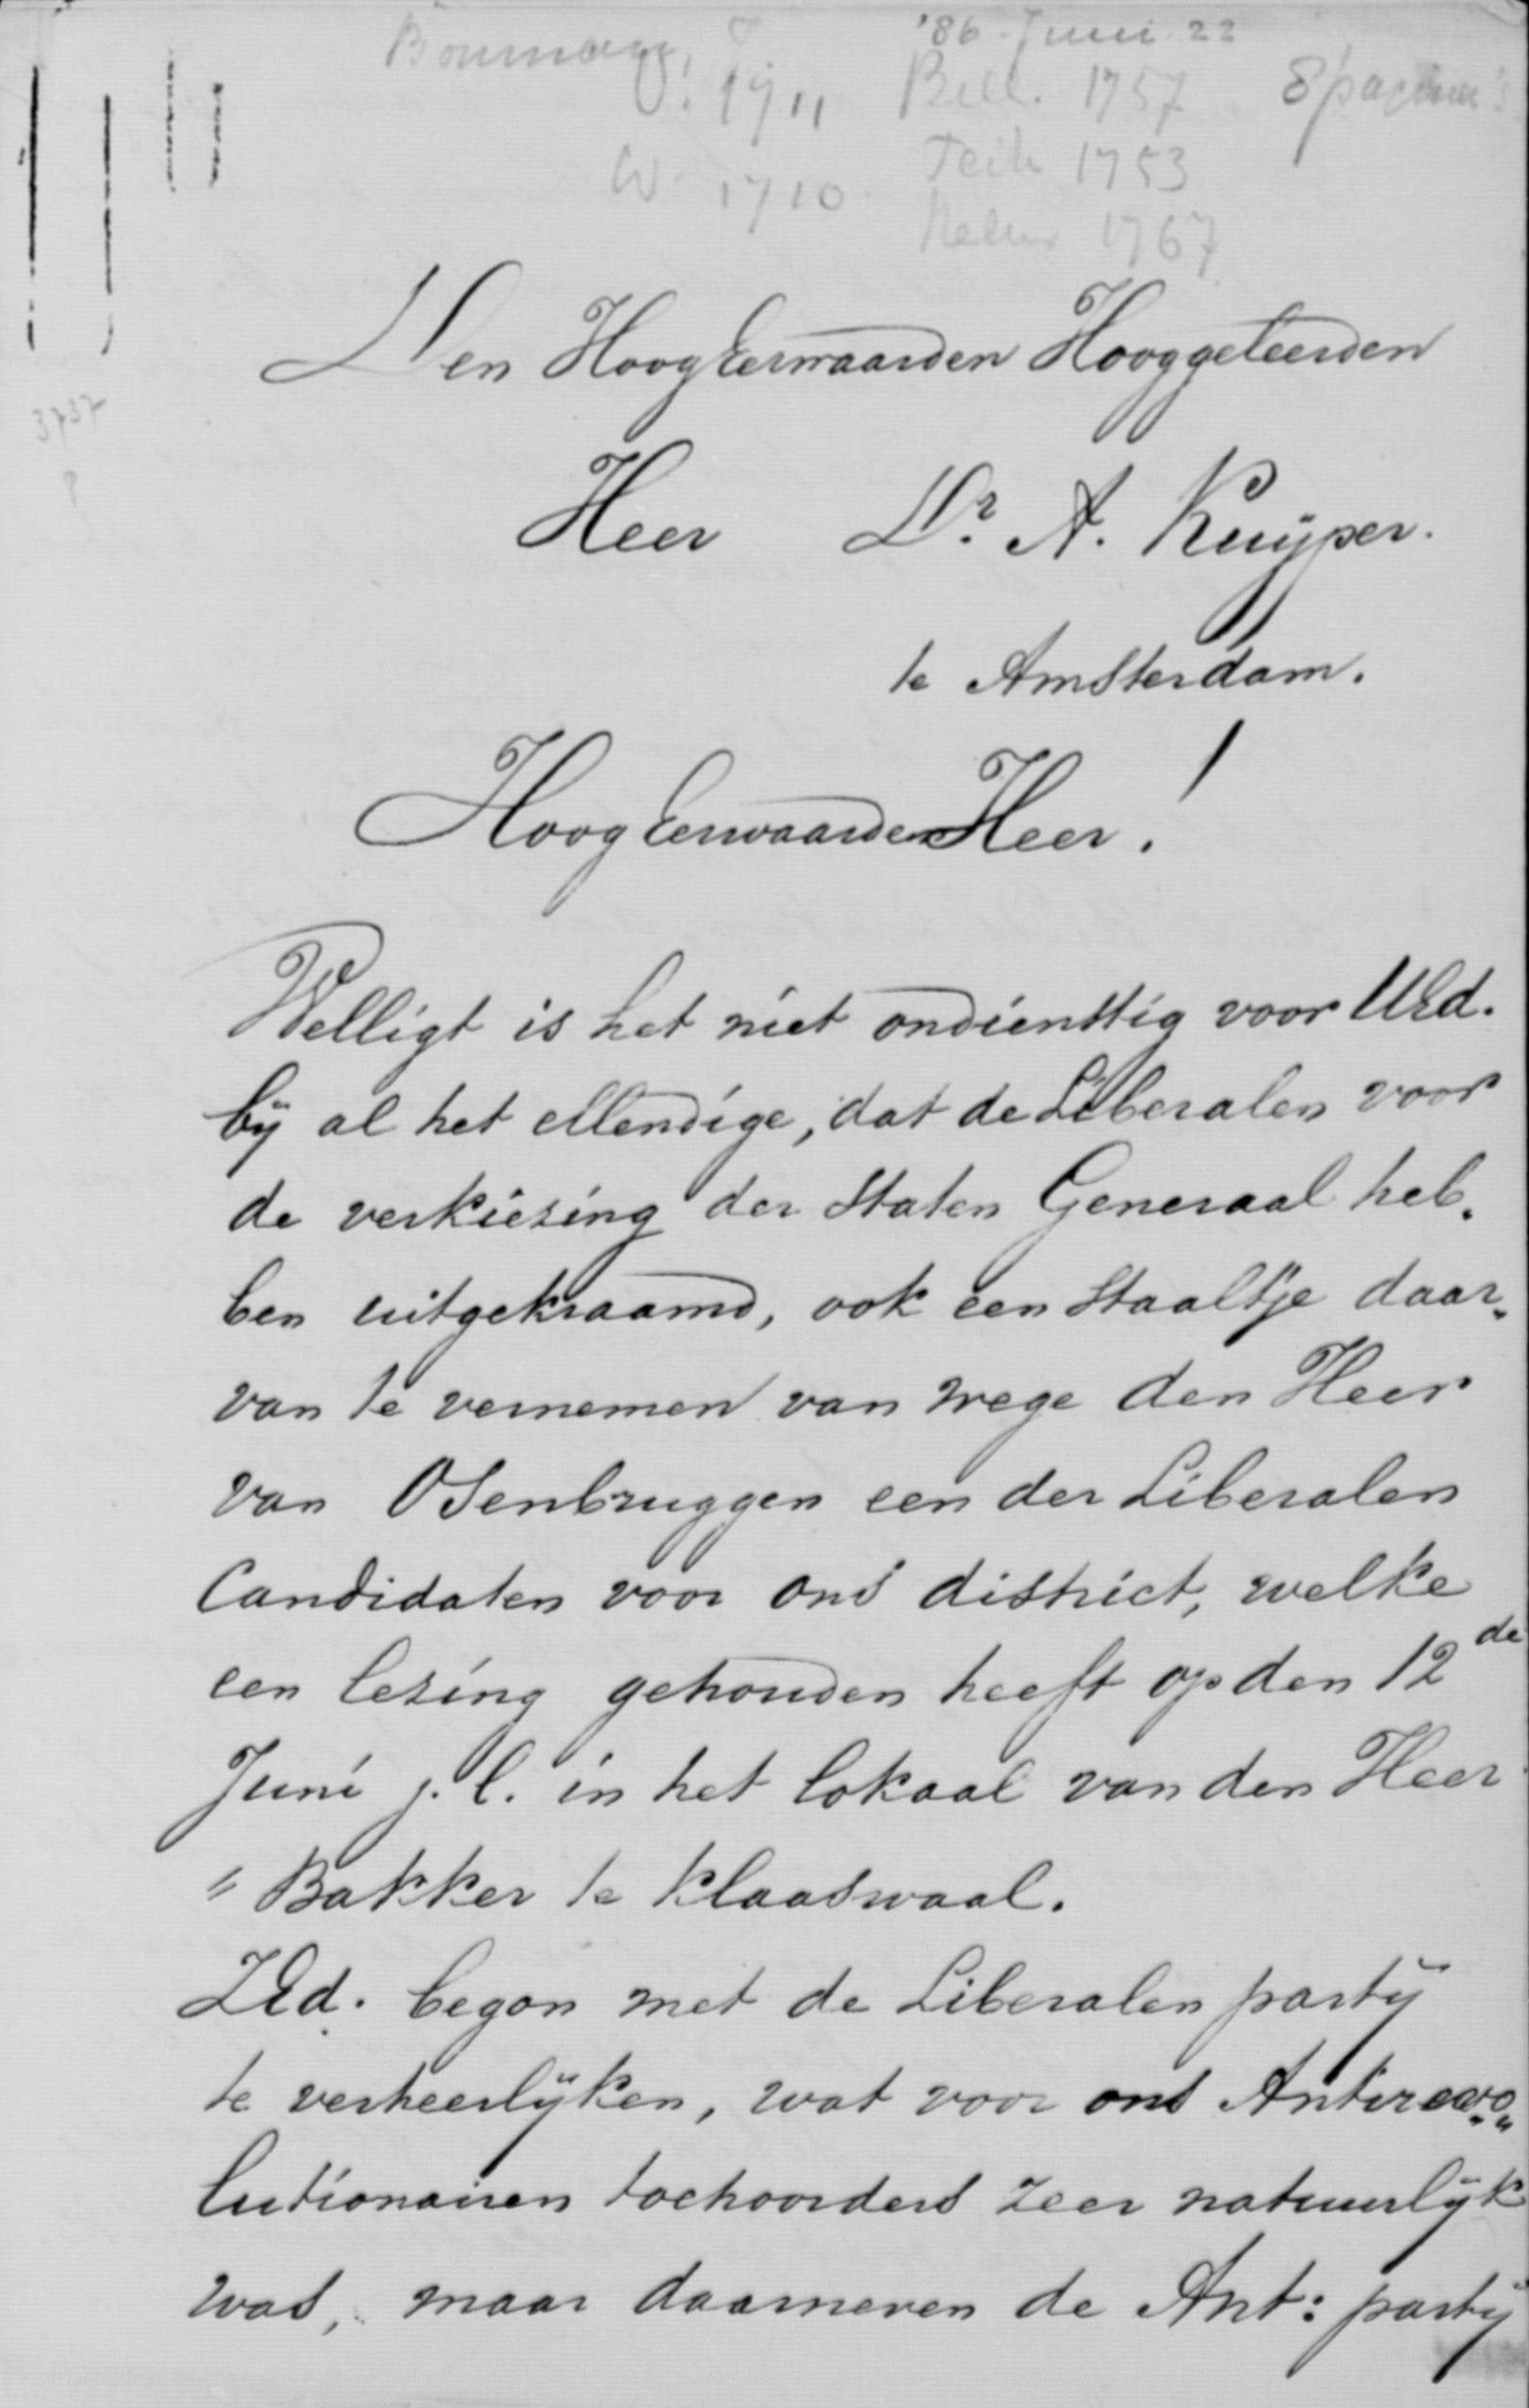 '86 Juni 22
1711 Bell. 1757 8 pagina's
W. 1710 1753
1767
3737
Den HoogEerwaarden Hooggeleerden
Heer Dr. A. Kuijper.
te Amsterdam.
HoogEerwaarden Heer!
Welligt is het niet ondienstig voor UEd.
bij al het ellendige, dat de Liberalen voor
de verkiezing der Staten Generaal heb„
ben uitgekraamd, ook een staaltje daar„
van te vernemen van wege den Heer
van Osenbruggen een der Liberalen
Candidaten voor ons district, welke
een lezing gehouden heeft op den 12de
Juni j.l. in het lokaal van den Heer
" Bakker te Klaaswaal.
ZEd. begon met de Liberalen partij
te verheerlijken, wat voor ons Antirevo„
lutionairen toehoorders zeer natuurlijk
was, maar daarneven de Ant: partij